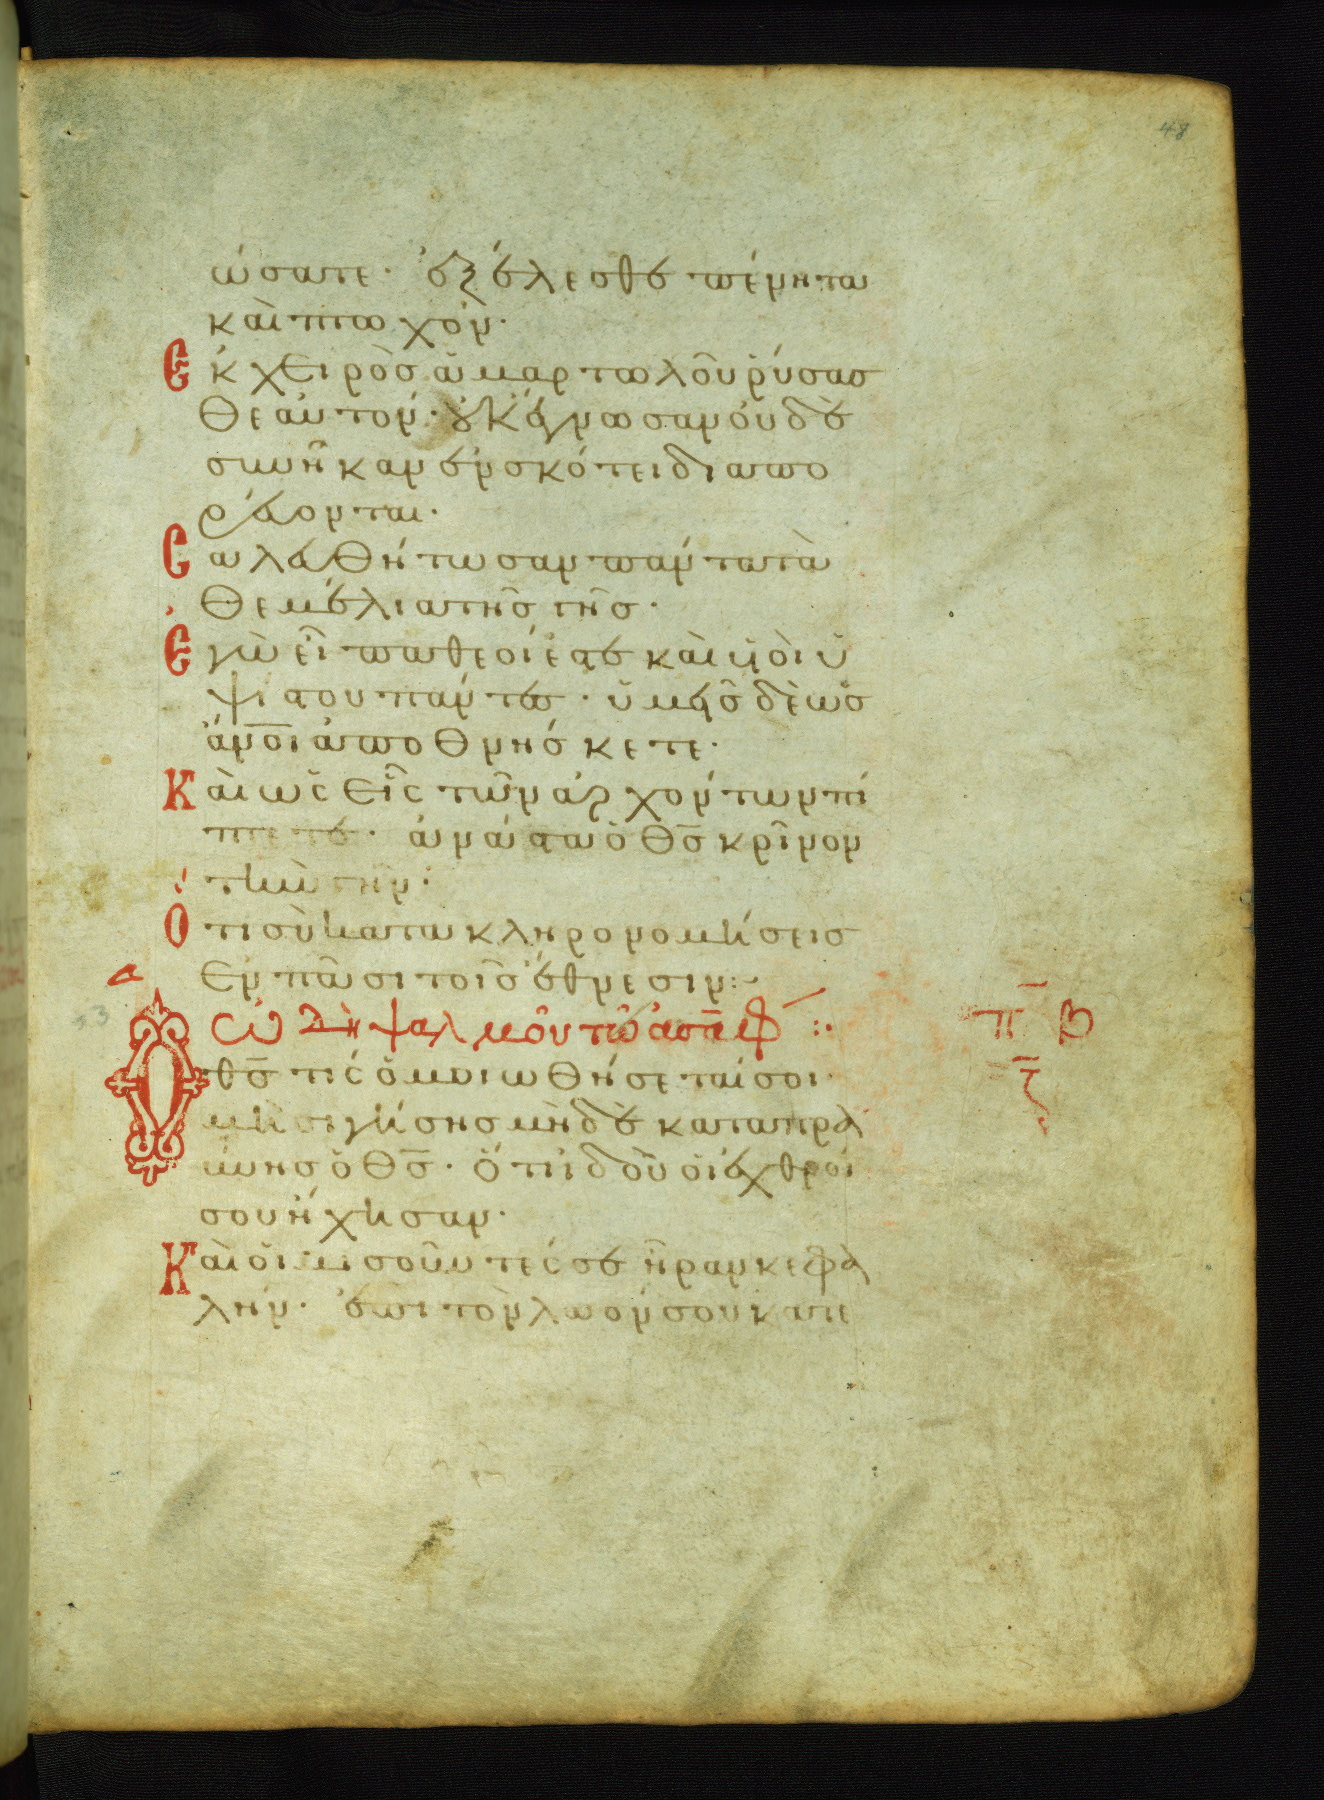 48
ώσατε· ἐξέλεσθε πένητα
καὶ πτωχόν·
Ἐκ χειρὸς ἁμαρτωλοῦ ῥύσασ
θε αὐτόν· οὐκ ἔγνωσαν οὐδὲ
συνῆκαν ἐν σκότει διαπο
ρεύονται·
Σαλευθήτωσαν πάντα τὰ
θεμέλια τῆς γῆς·
Ἐγὼ εἶπα θεοί ἐστε καὶ υἱοὶ ὑ
ψίστου πάντες· ὑμεῖς δὲ ὡς
ἄν̅ο̅ι ἀποθνήσκετε·
Καὶ ὡς εἷς τῶν ἀρχόντων πί
πτετε· ἀνάστα ὁ θ̅ς̅ κρῖνον
τὴν γῆν·
Ὅτι σὺ κατακληρονομήσεις
ἐν πᾶσι τοῖς ἔθνεσιν:~
ὠδὴ ψαλμοῦ τῷ ἀσάφ :·
π̅ β̅
Ὁ θ̅ς̅ τίς ὁμοιωθήσεταί σοι·
ζ̅
μὴ σιγήσῃς μηδὲ καταπρα
ΰνῃς ὁ θ̅ς̅· ὅτι ἰδοὺ οἱ ἐχθροί
σου ἤχησαν·
Καὶ οἱ μισοῦντές σε ἦραν κεφα
λήν· ἐπὶ τὸν λαόν σου κατε